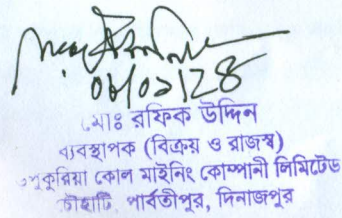 ০৮/০১/২৪
মোঃ রফিক উদ্দিন
ব্যবস্থাপক (বিক্রয় ও রাজস্ব)
পুকুরিয়া কোল মাইনিং কোম্পানী লিমিটেড
চৌহাটি, পার্বতীপুর, দিনাজপুর